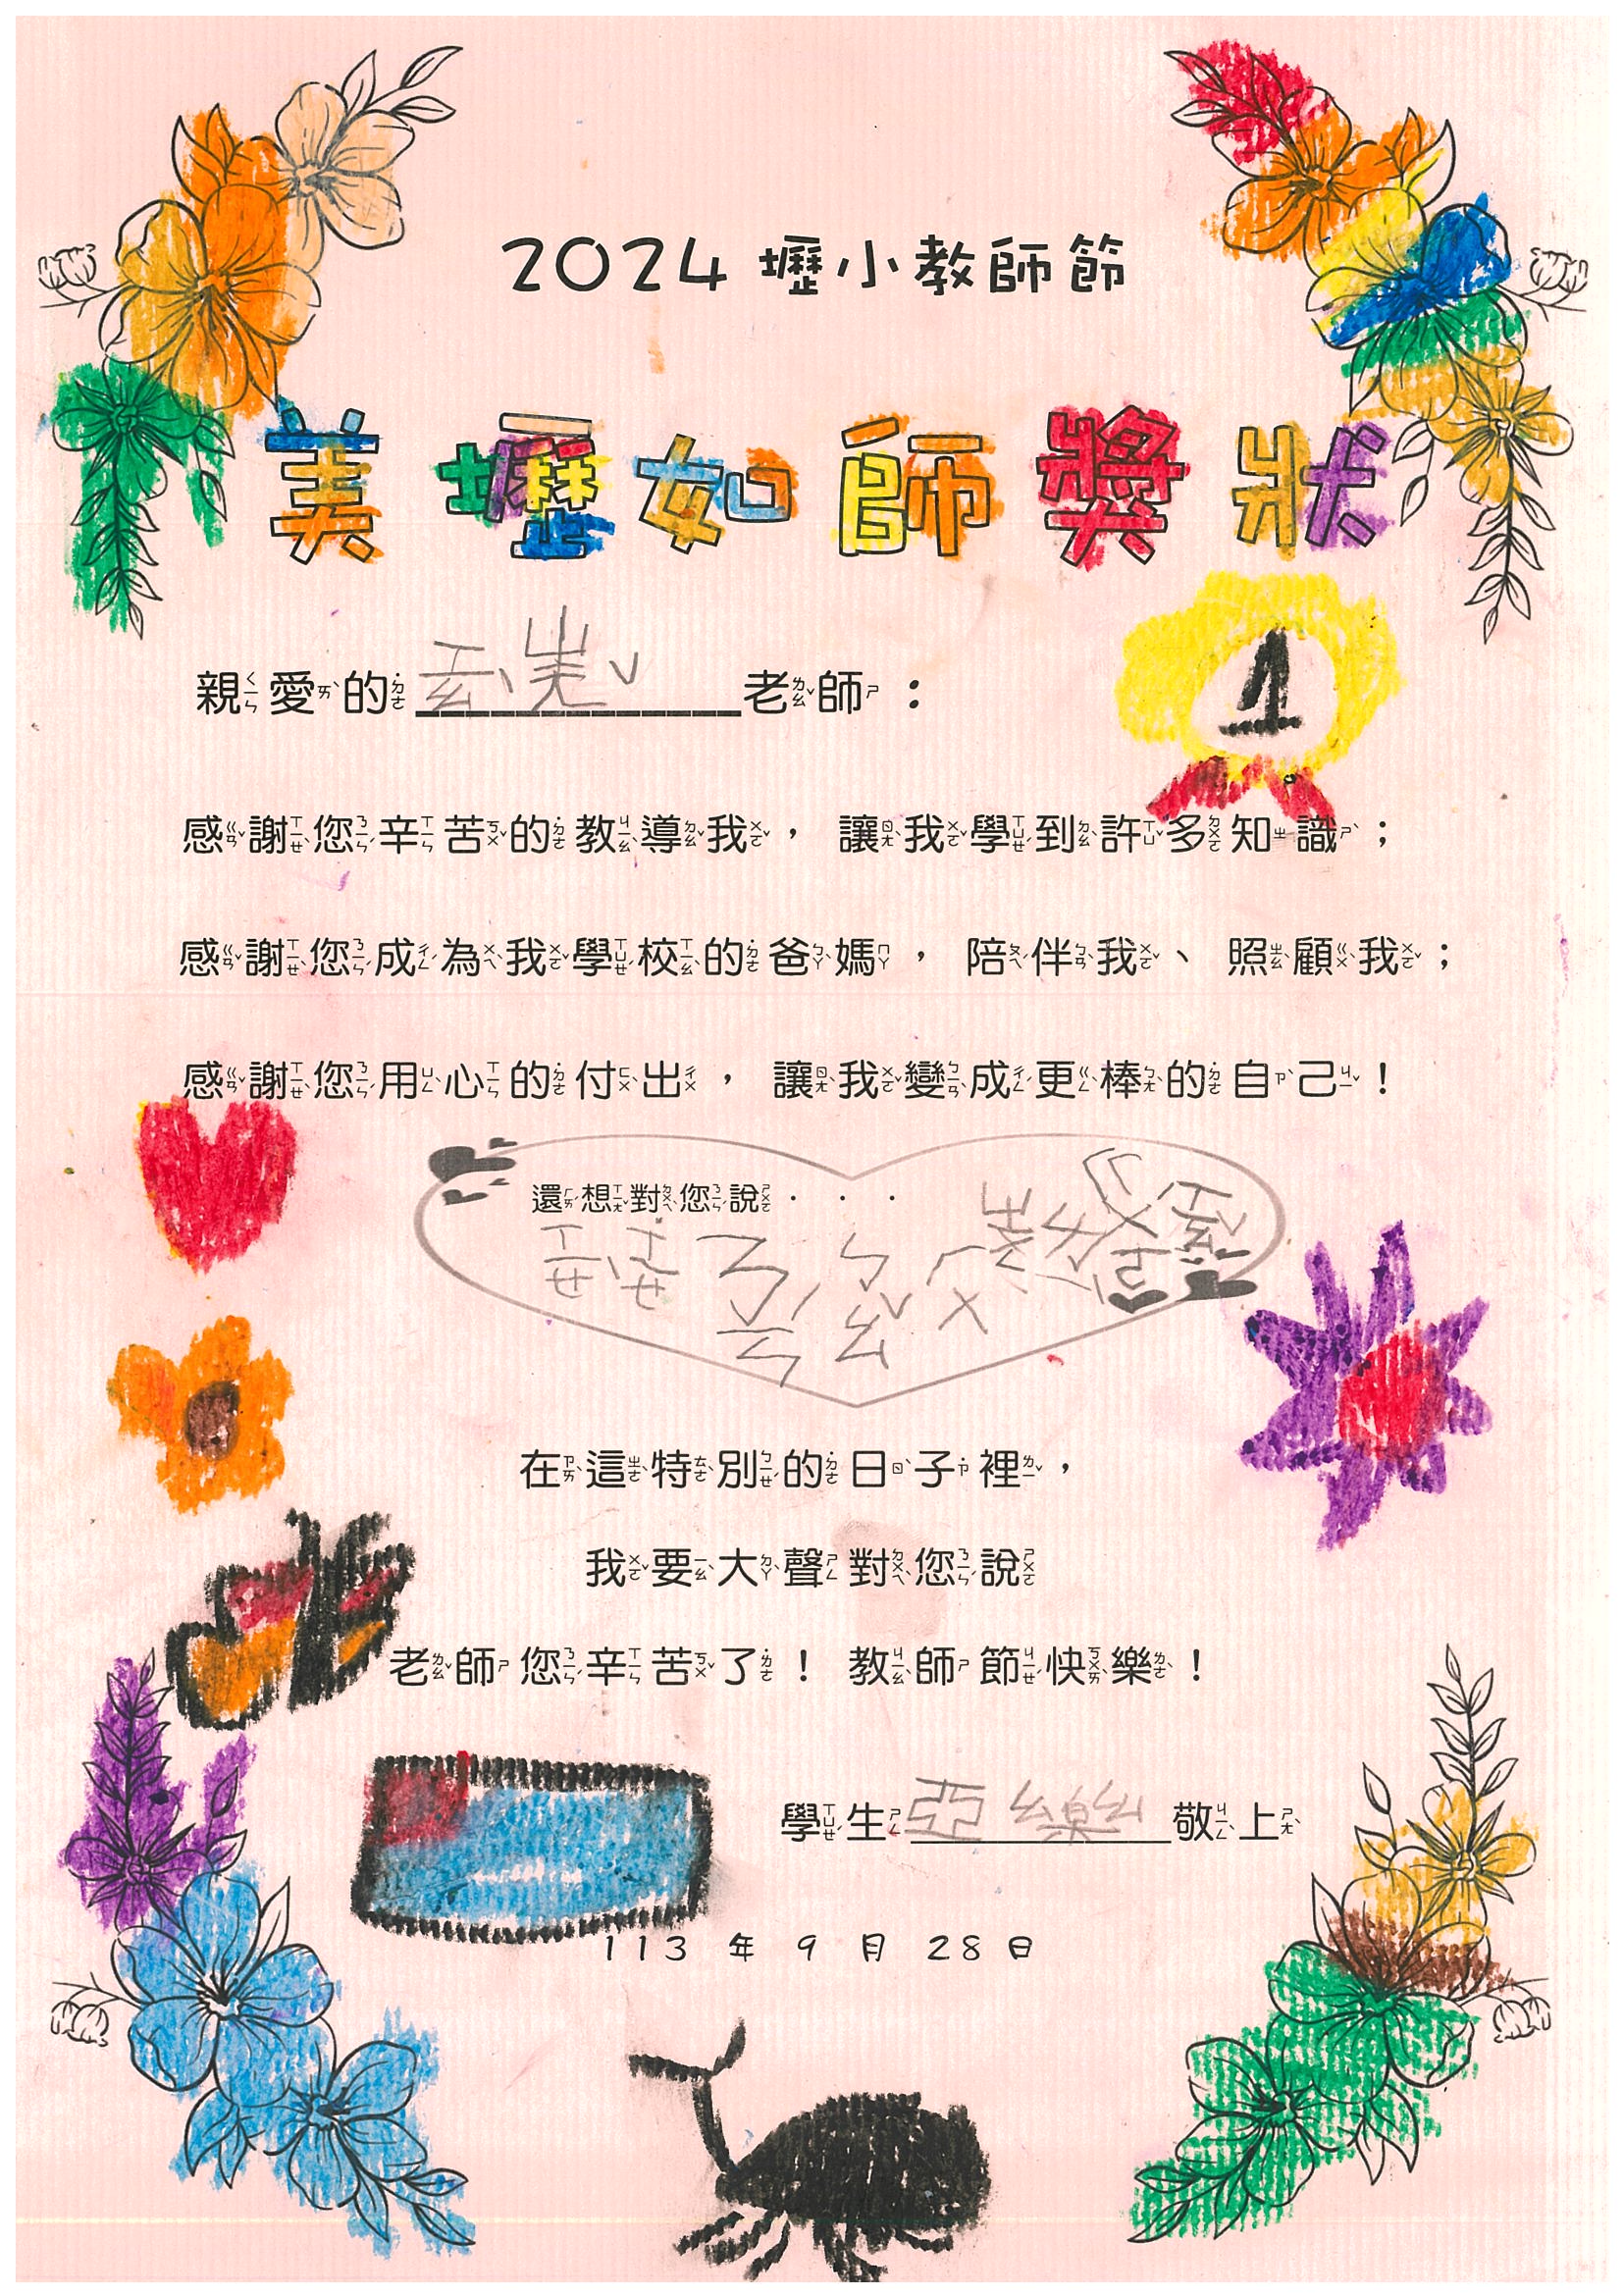 2024 壢小教師節
美壢如師獎狀
親愛的 老師：
感謝您辛苦的教導我， 讓我學到許多知識；
感謝您成為我學校的爸媽， 陪伴我、 照顧我；
感謝您用心的付出， 讓我變成更棒的自己！
還想對您說．．．
ㄒㄧㄝˋㄒㄧㄝ˙
在這特別的日子裡，
我要大聲對您說
老師您辛苦了！ 教師節快樂！
學生 亞樂 敬上
113 年 9 月 28 日
1